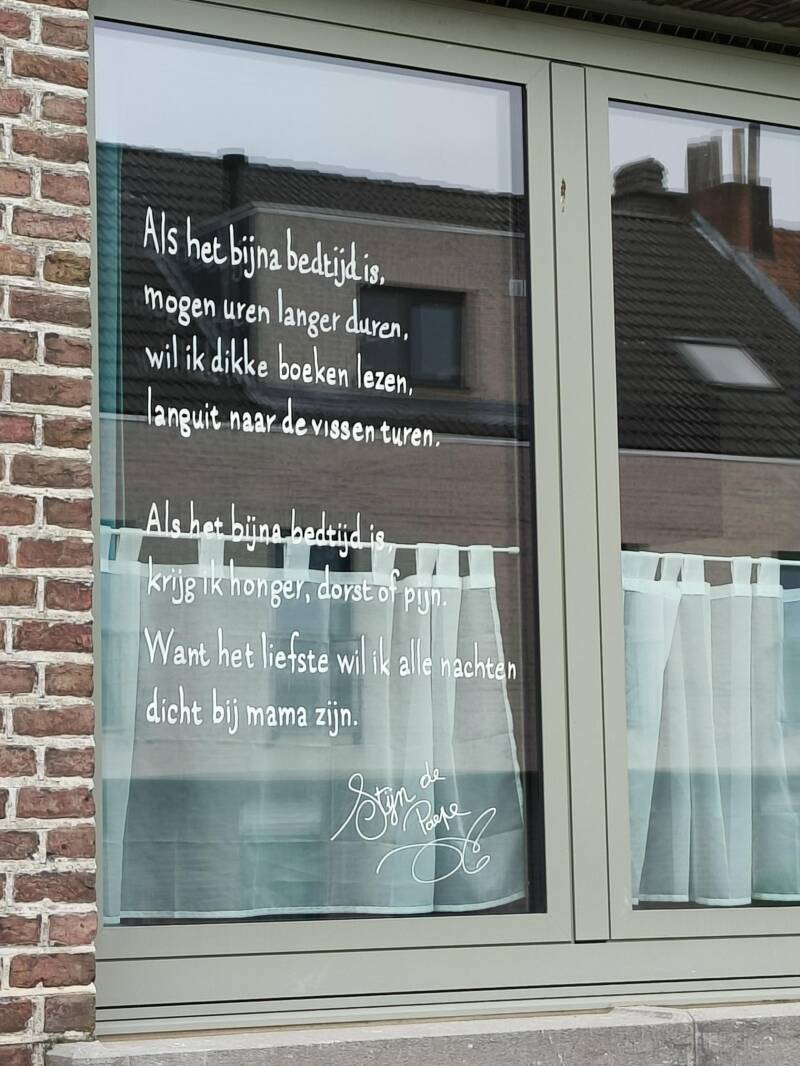 Als het bijna bedtijd is,
mogen uren langer duren,
wil ik dikke boeken lezen,
languit naar de vissen turen.
Als het bijna bedtijd is,
krijg ik honger, dorst of pijn.
Want het liefste wil ik alle nachten
dicht bij mama zijn.
Stijn de
Paepe